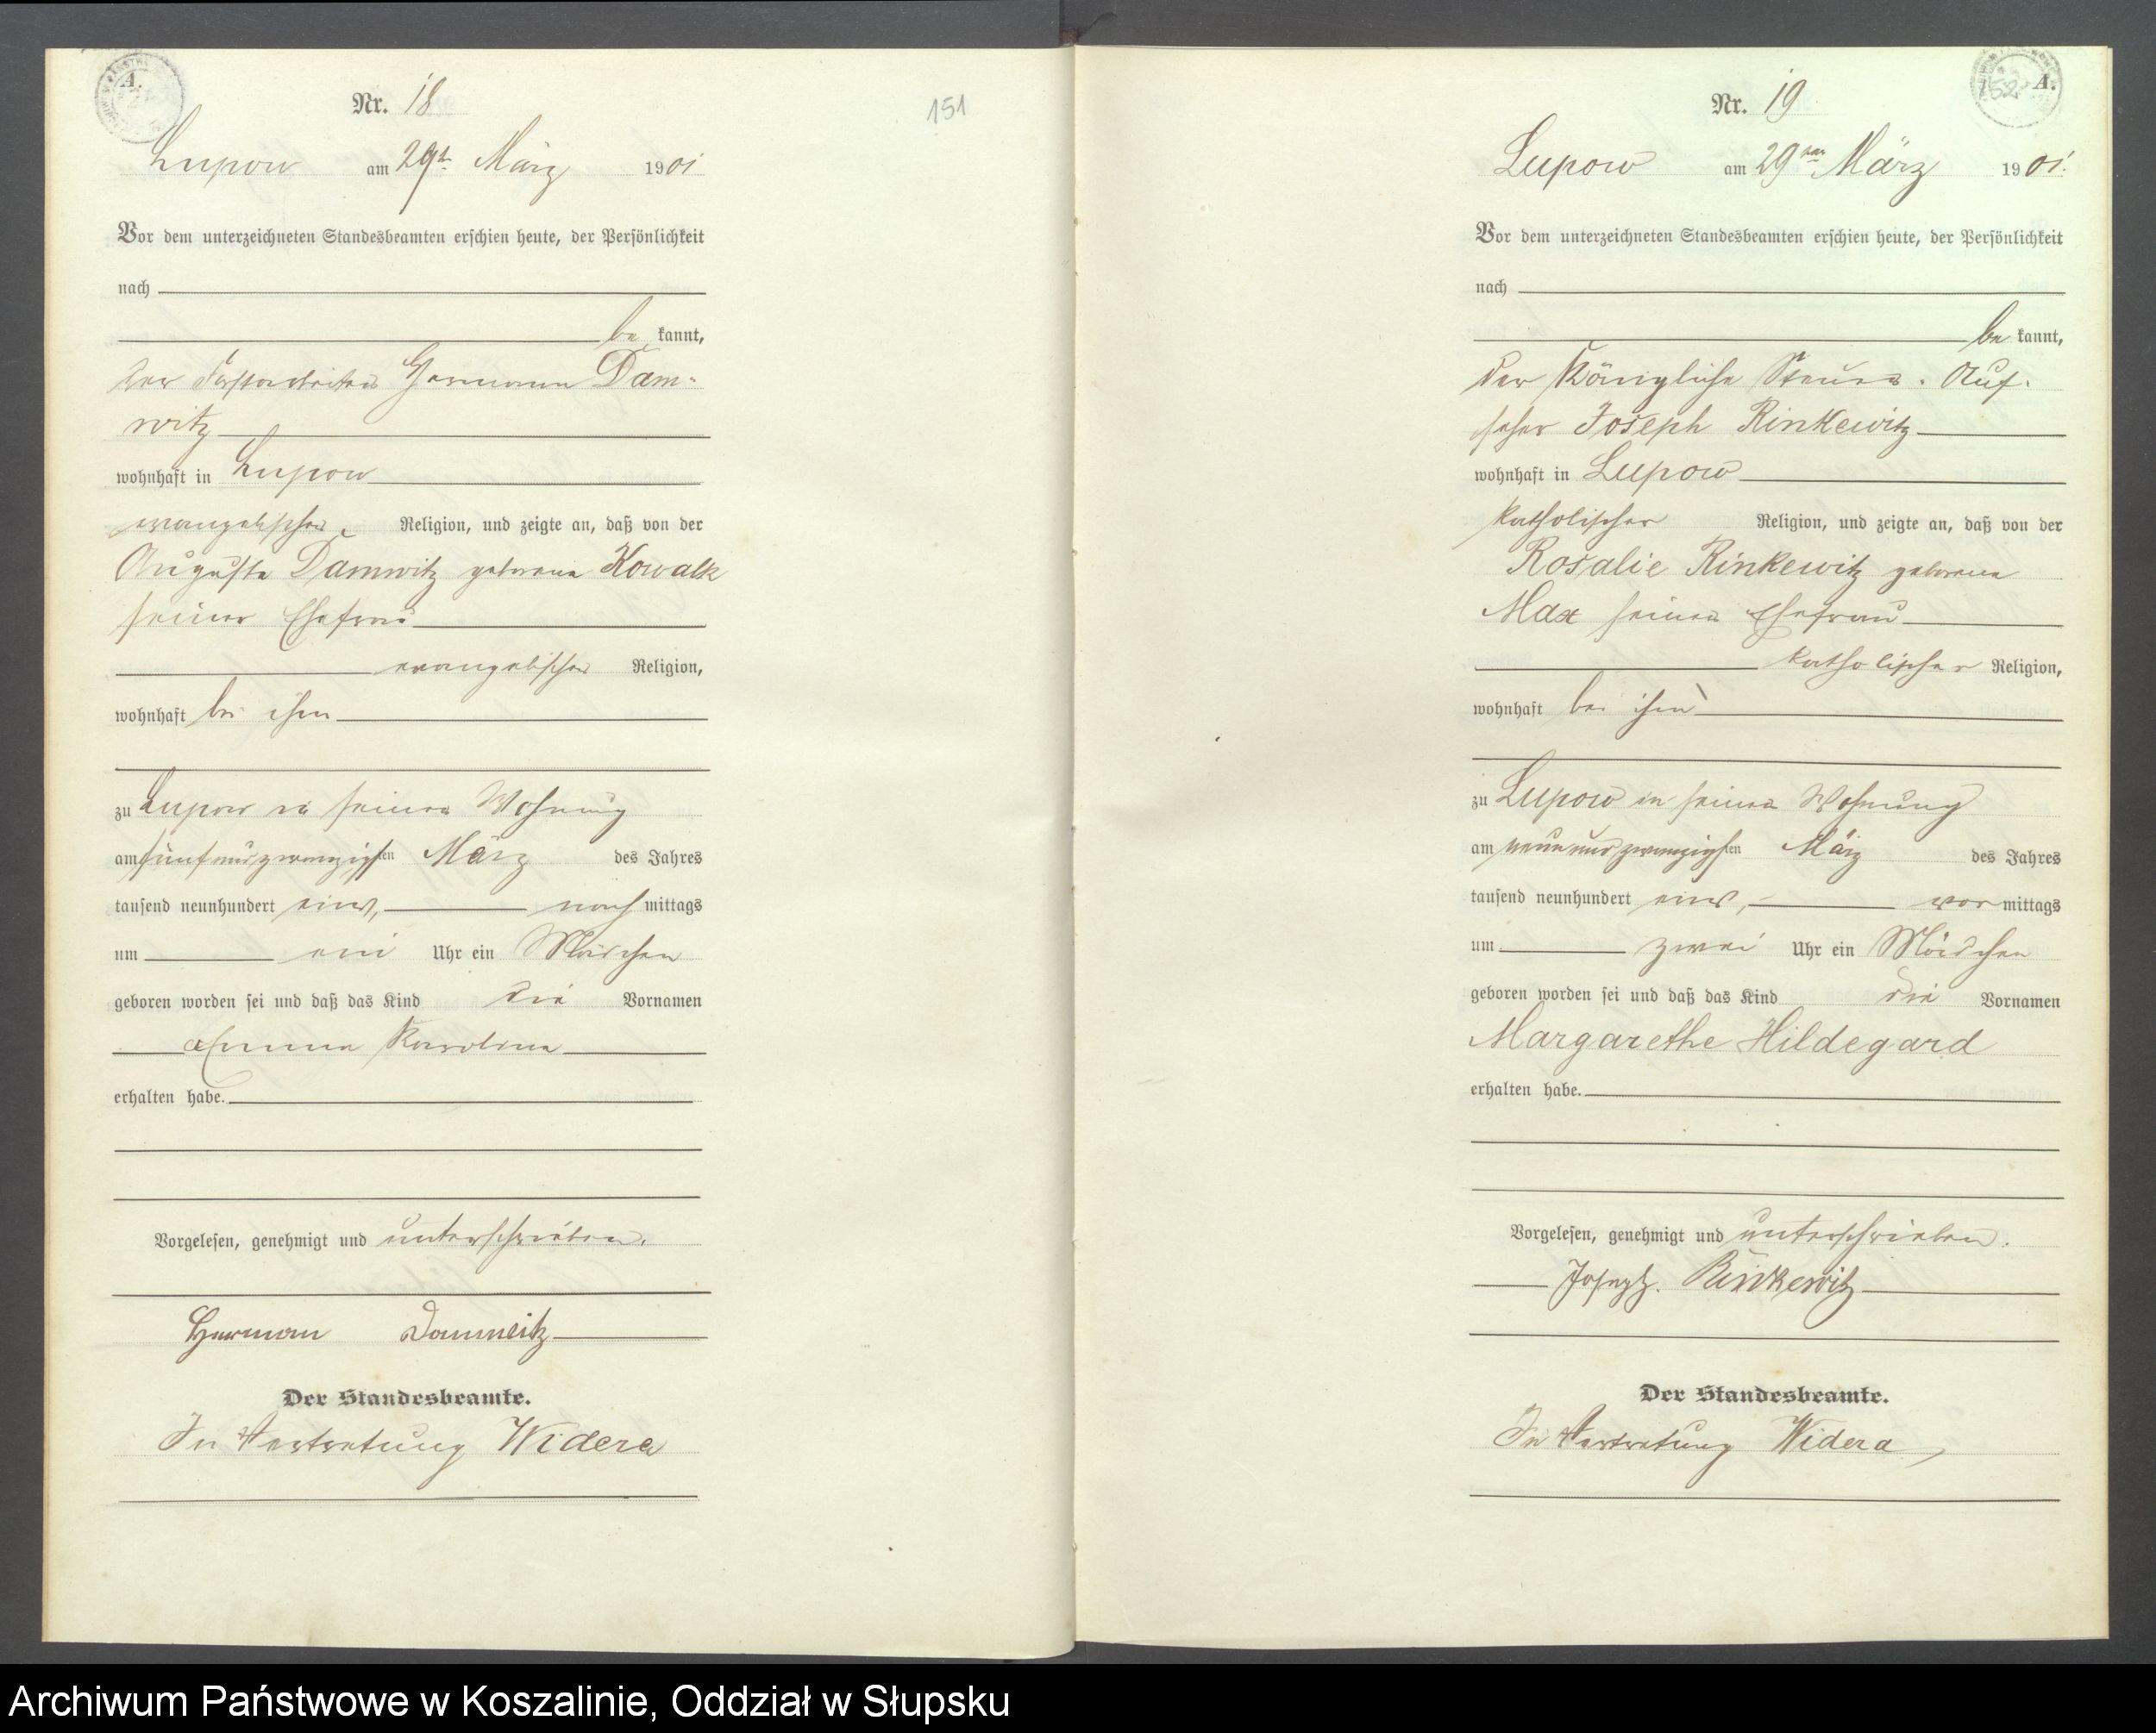 A.
Nr. 18
151
Lupow am 29ten März 1901
Vor dem unterzeichneten Standesbeamten erschien heute, der Persönlichkeit
nach
be kannt,
der Forstarbeiter Hermann Dam-
witz
wohnhaft in Lupow
evangelischer Religion, und zeigte an, daß von der
Auguste Damwitz geborene Kowalk
seiner Ehefrau
evangelischer Religion,
wohnhaft bei ihm
zu Lupow in seiner Wohnung
am fünfundzwanzigsten März des Jahres
tausend neunhundert eins, nach mittags
um ein Uhr ein Mädchen
geboren worden sei und daß das Kind die Vornamen
Emma Karoline
erhalten habe.
Vorgelesen, genehmigt und unterschrieben.
Herman Damwitz
Der Standesbeamte.
In Vertretung Widera
A.
152
Nr. 19
Lupow am 29ten März 1901.
Vor dem unterzeichneten Standesbeamten erschien heute, der Persönlichkeit
nach
be kannt,
der Königliche Steuer-Auf-
seher Joseph Rinkewitz
wohnhaft in Lupow
katholischer Religion, und zeigte an, daß von der
Rosalie Rinkewitz geborene
Max seiner Ehefrau
katholischer Religion,
wohnhaft bei ihm
zu Lupow in seiner Wohnung
am neunundzwanzigsten März des Jahres
tausend neunhundert eins, vor mittags
um zwei Uhr ein Mädchen
geboren worden sei und daß das Kind die Vornamen
Margarethe Hildegard
erhalten habe.
Vorgelesen, genehmigt und unterschrieben.
Joseph. Rinkewitz
Der Standesbeamte.
In Vertretung Widera
Archiwum Państwowe w Koszalinie, Oddział w Słupsku